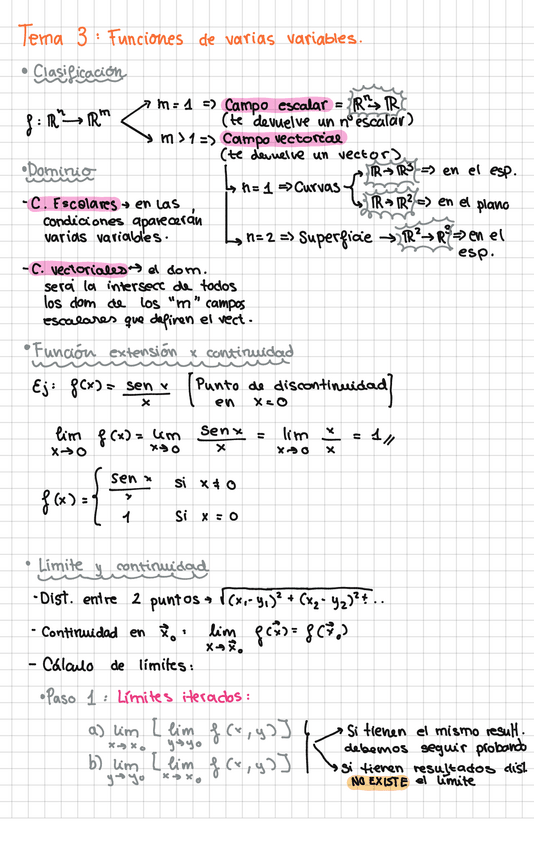 Tema 3: Funciones de varias variables.
• Clasificación
f: ℝⁿ → ℝᵐ
m = 1 => Campo escalar = ℝⁿ → ℝ
(te devuelve un nº escalar)
m > 1 => Campo vectorial
(te devuelve un vector)
n = 1 => Curvas
ℝ → ℝ³ => en el esp.
ℝ → ℝ² => en el plano
n = 2 => Superficie → ℝ² → ℝ³ => en el
esp.
• Dominio
- C. Escalares → en las
condiciones aparecerán
varias variables.
- C. vectoriales → el dom.
será la intersecc de todos
los dom de los "m" campos
escalares que definen el vect.
• Función extensión x continuidad
Ej: f(x) = sen x / x [Punto de discontinuidad]
en x = 0
lim x→0 f(x) = lim x→0 sen x / x = lim x→0 x / x = 1 //
f(x) = { sen x / x si x ≠ 0
1 si x = 0
• Límite y continuidad
- Dist. entre 2 puntos → √(x₁ - y₁)² + (x₂ - y₂)² + ..
- Continuidad en x⃗₀: lim x→x⃗₀ f(x⃗) = f(x⃗₀)
- Cálculo de límites:
• Paso 1: Límites iterados:
a) lim x→x₀ [ lim y→y₀ f(x,y) ]
b) lim y→y₀ [ lim x→x₀ f(x,y) ]
Si tienen el mismo result.
debemos seguir probando
si tienen resultados dist.
NO EXISTE el límite